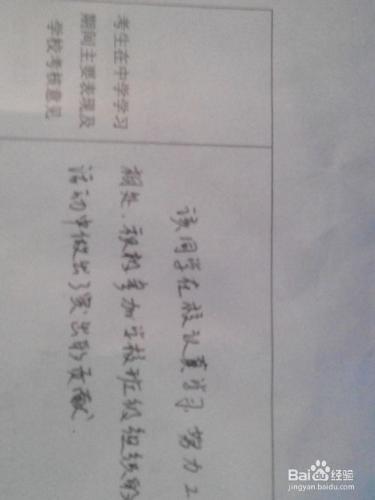 考生在中学学习
期间主要表现及
学校考核意见
该同学在校认真学习 努力工
相处、积极参加学校班级组织的
活动中做出了突出的贡献.
Baidu经验
jingyan.baidu.com